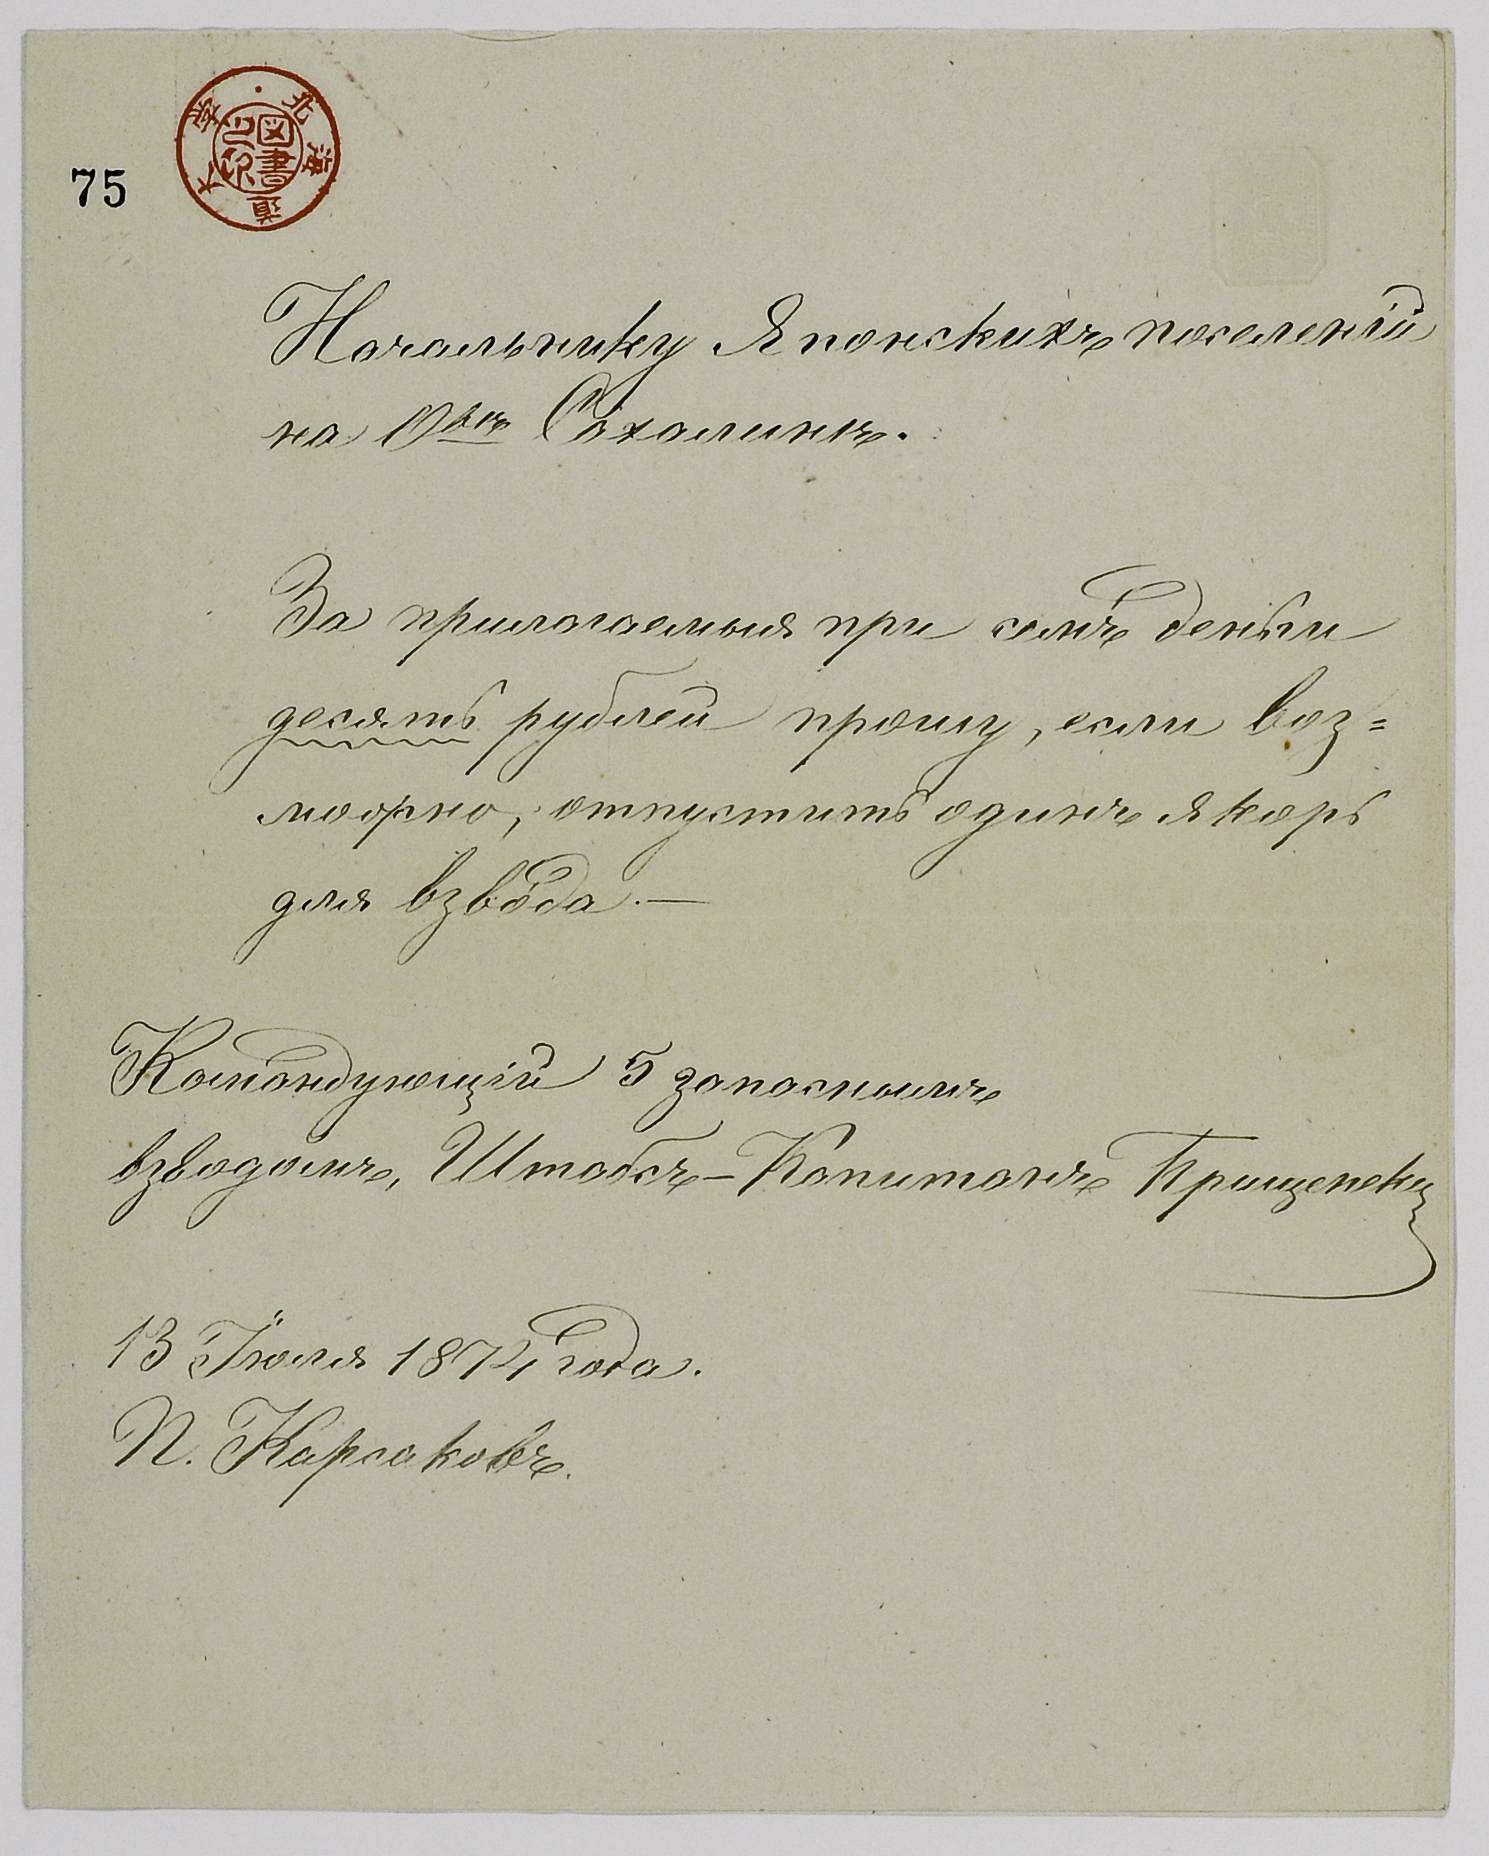 75
北海道大学
図書之印
Начальнику Японскихъ поселеній
на О-вѣ Сахалинѣ.
За прилагаемыя при семъ деньги
десять рублей прошу, если воз=
можно, отпустить одинъ якорь
для взвода.—
Командующій 5 запаснымъ
взводомъ, Штабсъ-Капитанъ
13 Іюля 1874 года.
П. Карсаковъ.